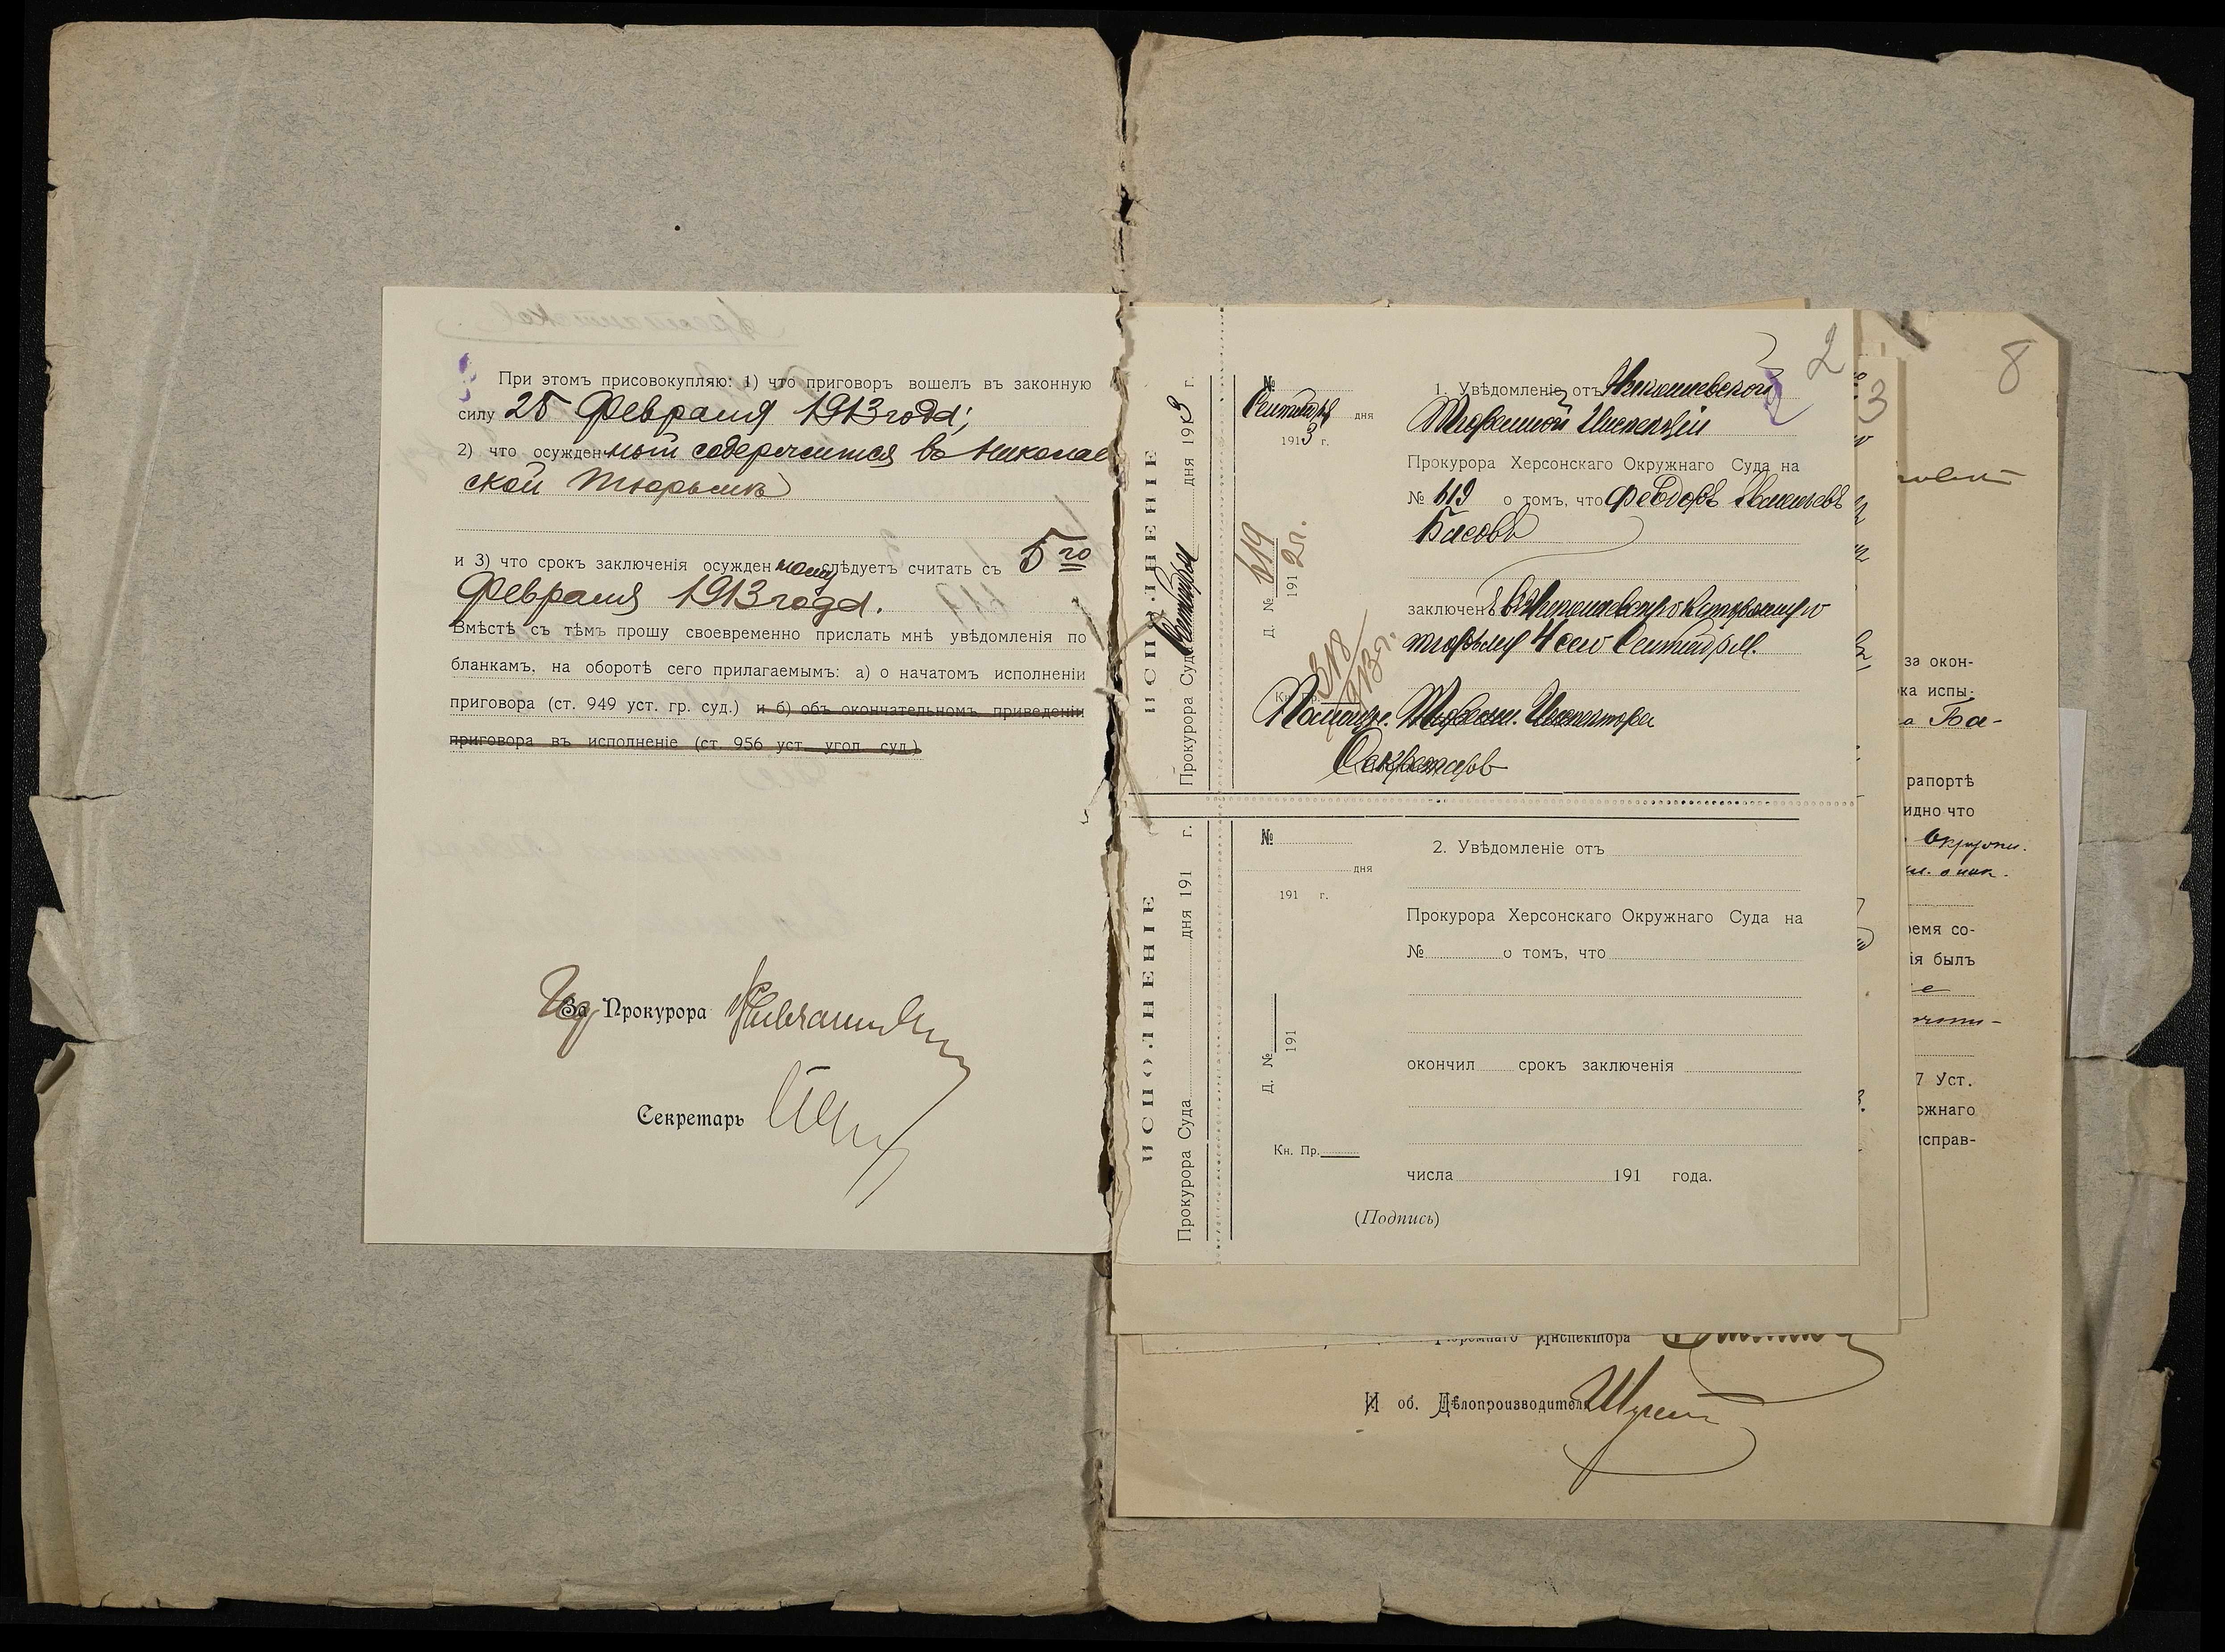 При этомъ присовокупляю: 1) что приговоръ вошелъ въ законную
силу 25 Февраля 1913 года;
2) что осужденный содержится въ Николаев
ской тюрьмѣ
и 3) что срокъ заключенія осужденному слѣдуетъ считать съ 5го
Февраля 1913 года.
Вмѣстѣ съ тѣмъ прошу своевременно прислать мнѣ увѣдомленія по
бланкамъ, на оборотѣ сего прилагаемымъ: а) о начатомъ исполненіи
приговора (ст. 949 уст. гр. суд.) и б) объ окончательномъ приведеніи
приговора въ исполненіе (ст. 956 уст. угол. суд.)
За Прокурора
Секретарь
ИСПОЛНЕНІЕ
Прокурора Суда Сентября дня 1913 г.
№
Сентября дня
1913 г.
Д. № 619
1912 г.
Кн. Пр. 318
1913 г.
2
1. Увѣдомленіе отъ Николаевской
Тюремной Инспекціи
Прокурора Херсонскаго Окружнаго Суда на
№ 619 о томъ, что Феодоръ Васильевъ
Басовъ
заключенъ въ Николаевскую каторжную
тюрьму 4 сего Сентября.
Помощн. Тюремн. Инспектора
Секретарь
ИСПОЛНЕНІЕ
Прокурора Суда дня 191 г.
№
дня
191 г.
Д. №
191
Кн. Пр.
2. Увѣдомленіе отъ
Прокурора Херсонскаго Окружнаго Суда на
№ о томъ, что
окончил срокъ заключенія
числа 191 года.
(Подпись)
3
8
за окон-
ка испы-
а Ба-
рапортѣ
идно что
Окружн.
ремя со-
ія былъ
7 Уст.
ожнаго
исправ-
Тюремнаго Инспектора
И об. Дѣлопроизводителя